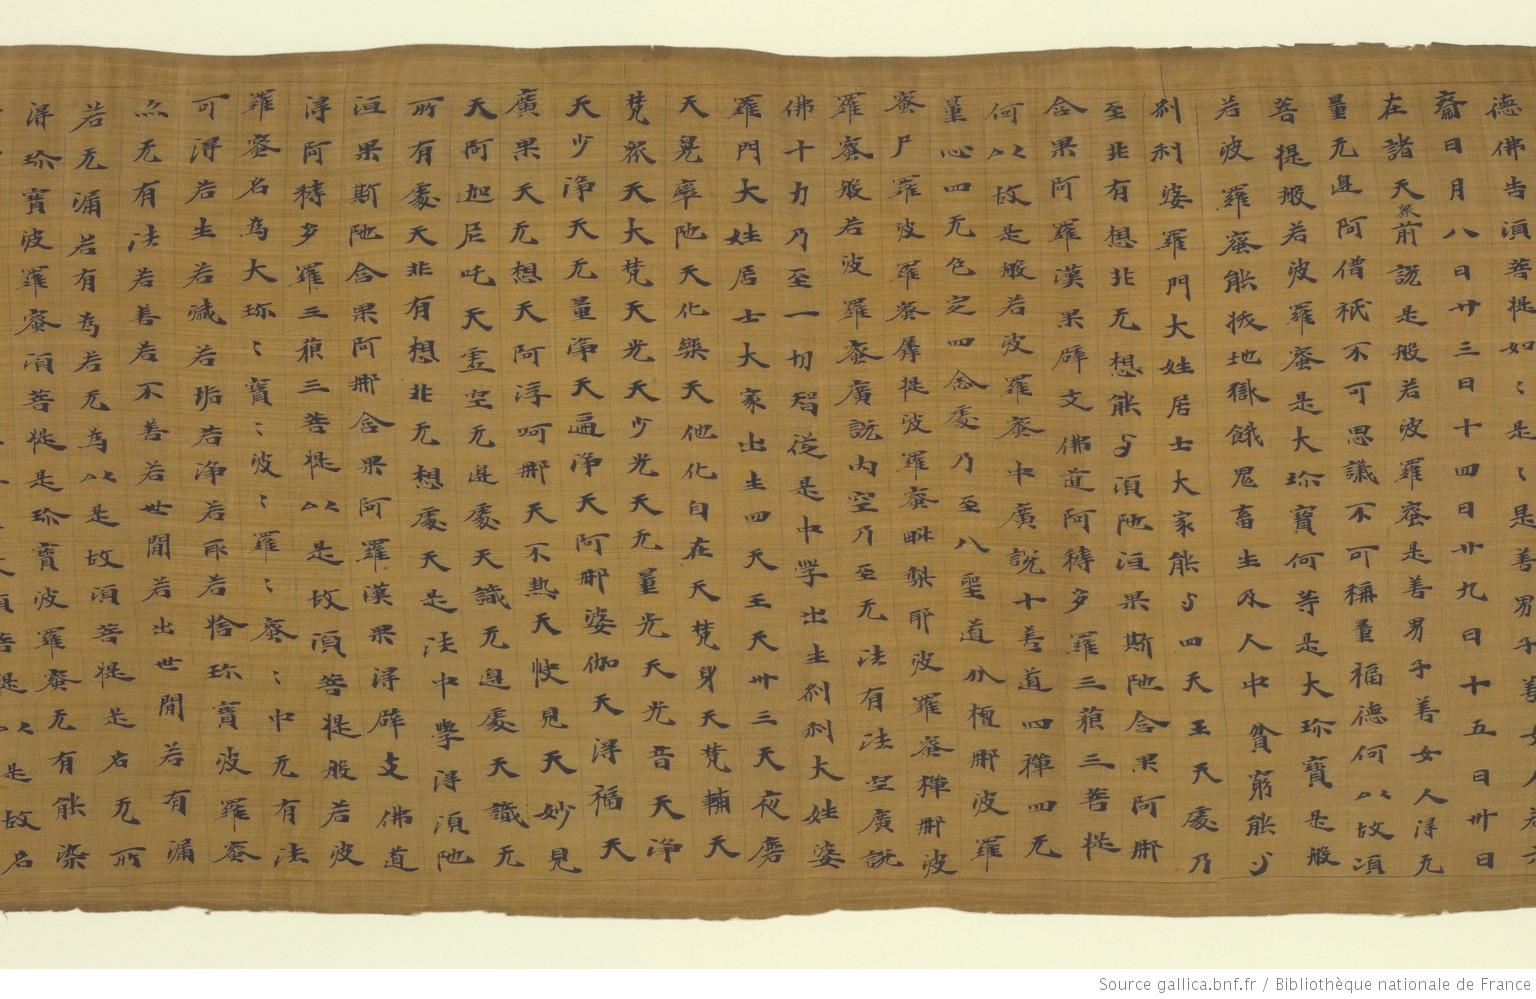 德佛告湏菩提如〻是〻是善男子善女人若六
齋日月八日廿三日十四日廿九日十五日卅日
在諸天衆前說是般若波羅蜜是善男子善女人淂无
量无邊阿僧祇不可思議不可稱量福德何以故湏
菩提般若波羅蜜是大珎寶何等是大珎寶是般
若波羅蜜能拔地獄餓鬼畜生及人中貧窮能与
刹利婆羅門大姓居士大家能与四天王天處乃
至非有想非无想能与湏陁洹果斯陁含果阿那
含果阿羅漢果辟支佛道阿耨多羅三藐三菩提
何以故是般若波羅蜜中廣說十善道四禪四无
量心四无色定四念處乃至八聖道分檀那波羅
蜜尸羅波羅蜜羼提波羅蜜毗梨耶波羅蜜禪那波
羅蜜般若波羅蜜廣說内空乃至无法有法空廣說
佛十力乃至一切智從是中學出生刹利大姓婆
羅門大姓居士大家出生四天王天卅三天夜磨
天兠率陁天化樂天他化自在天梵身天梵輔天
梵衆天大梵天光天少光天无量光天光音天淨
天少淨天无量淨天遍淨天阿那婆伽天淂福天
廣果天无想天阿浮呵那天不熱天快見天妙見
天阿迦尼吒天虛空无邊處天識无邊處天識无
所有處天非有想非无想處天是法中學淂湏陁
洹果斯陁含果阿那含果阿羅漢果淂辟支佛道
淂阿耨多羅三藐三菩提以是故湏菩提般若波
羅蜜名為大珎〻寶〻波〻羅〻蜜〻中无有法
可淂若生若滅若垢若淨若取若捨珎寶波羅蜜
亦无有法若善若不善若世間若出世間若有漏
若无漏若有為若无為以是故湏菩提是名无所
淂珎寶波羅蜜湏菩提是珎寶波羅蜜无有能染
湏菩提以是故名
Source gallica.bnf.fr / Bibliothèque nationale de France